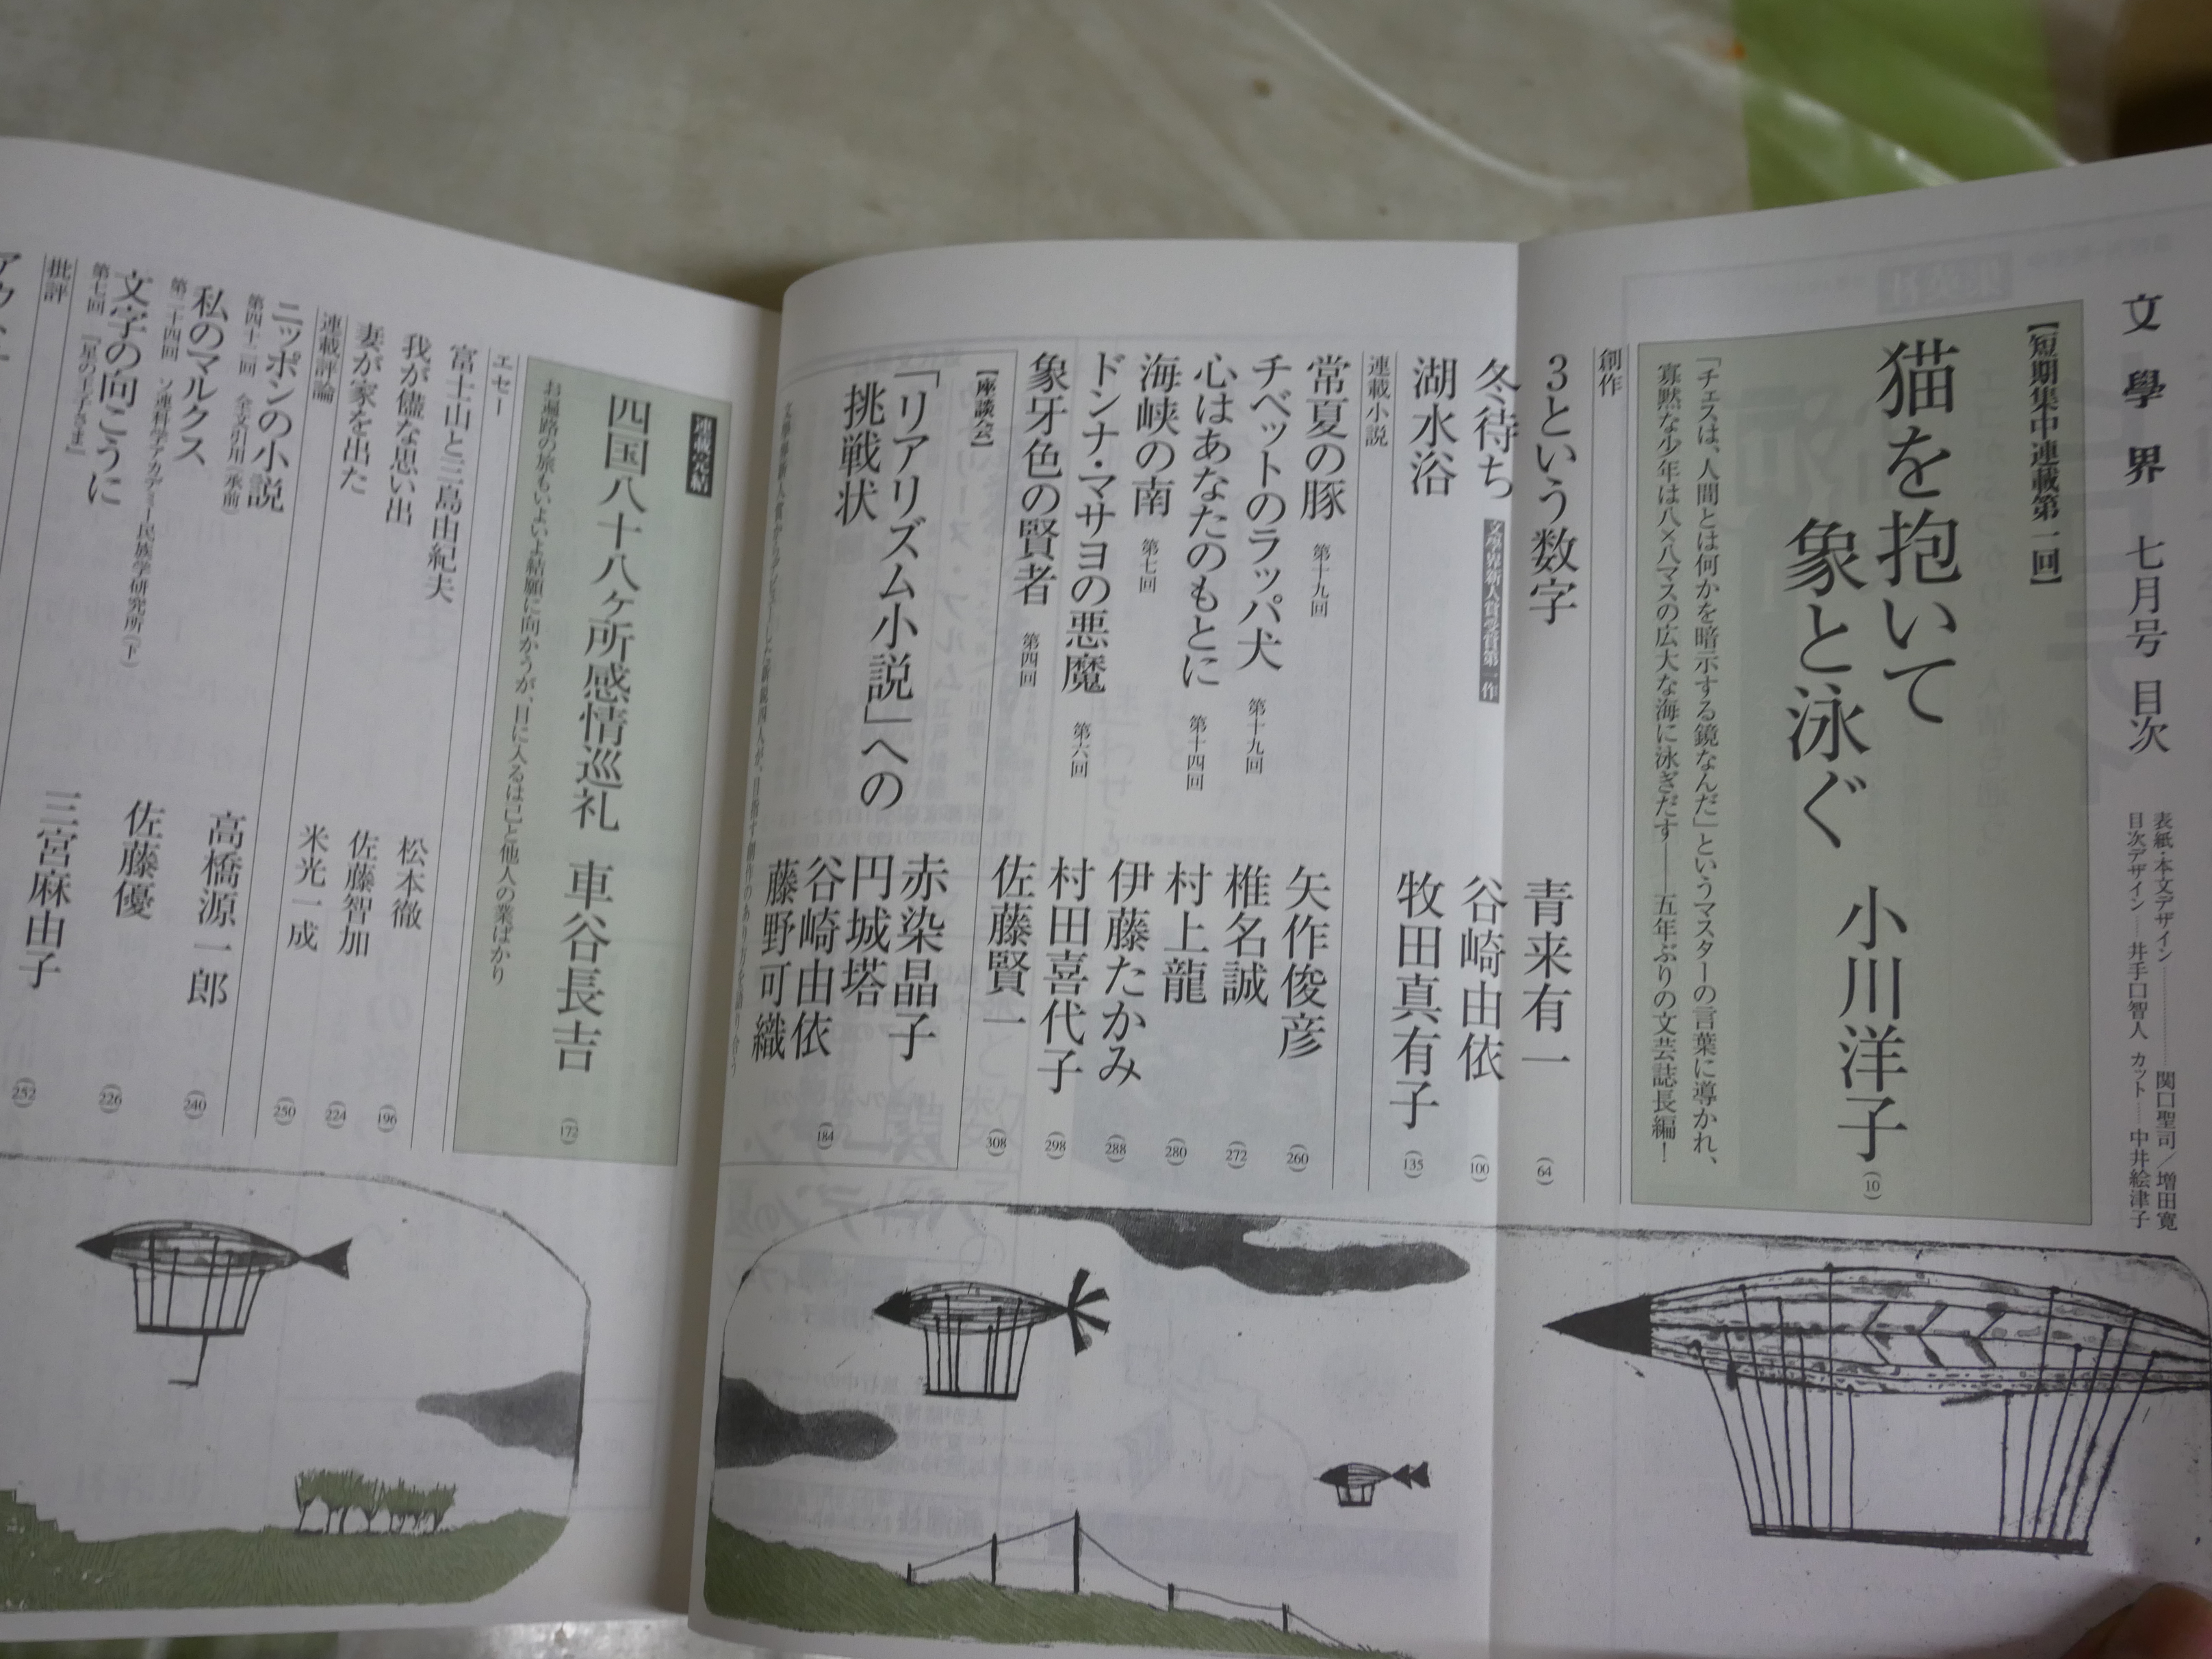 文學界 七月号 目次
表紙・本文デザイン 関口聖司／増田寛
目次デザイン 井手口智人 カット 中井絵津子
【短期集中連載第一回】
猫を抱いて
象と泳ぐ 小川洋子 (10)
「チェスは、人間とは何かを暗示する鏡なんだ」というマスターの言葉に導かれ、
寡黙な少年は八×八マスの広大な海に泳ぎだす——五年ぶりの文芸誌長編！
創作
3という数字 青来有一 (64)
冬待ち 文學界新人賞受賞第一作 谷崎由依 (100)
湖水浴 牧田真有子 (135)
連載小説
常夏の豚 第十九回 矢作俊彦 (260)
チベットのラッパ犬 第十九回 椎名誠 (272)
心はあなたのもとに 第十四回 村上龍 (280)
海峡の南 第七回 伊藤たかみ (288)
ドンナ・マサヨの悪魔 第六回 村田喜代子 (298)
象牙色の賢者 第四回 佐藤賢一 (308)
【座談会】
「リアリズム小説」への
挑戦状
赤染晶子
円城塔
谷崎由依
藤野可織 (184)
連載完結
四国八十八ケ所感情巡礼 車谷長吉 (172)
お遍路の旅もいよいよ結願に向かうが、目に入るは己と他人の業ばかり
エセー
富士山と三島由紀夫 松本徹 (196)
我が儘な思い出 佐藤智加 (224)
妻が家を出た 米光一成 (250)
連載評論
ニッポンの小説 高橋源一郎 (240)
第四十二回 全文引用（承前）
私のマルクス 佐藤優 (226)
第二十四回 ソ連科学アカデミー民族学研究所（下）
文字の向こうに 三宮麻由子 (252)
第七回 『星の王子さま』
批評